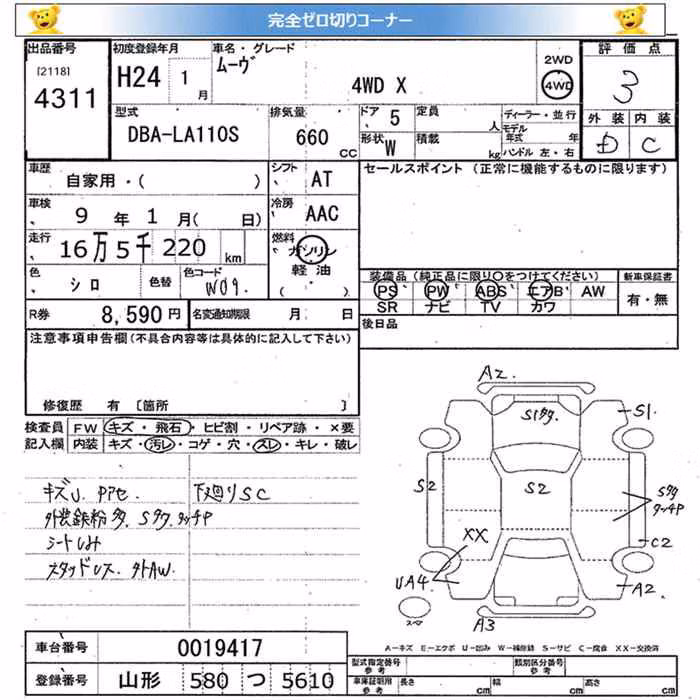 完全ゼロ切りコーナー
出品番号 初度登録年月 車名・グレード 評価点
[2118] 4311 H24 1月 ムーヴ 4WD X 2WD 4WD 3
型式 排気量 ドア 5 定員 人 ディーラー・並行 外装 内装
DBA-LA110S 660 CC 形状 W 積載 kg モデル年式 年 D C
ハンドル 左・右
車歴 自家用・( ) シフト AT セールスポイント (正常に機能するものに限ります)
車検 9年 1月( 日) 冷房 AAC
走行 16万5千220km 燃料 ガソリン 軽油 ( )
色 シロ 色替 色コード W09. 装備品 (純正品に限り○をつけてください) 新車保証書
PS PW ABS エアB AW 有・無
SR ナビ TV カワ
R券 8,590円 名変通知期限 月 日 後日品
注意事項申告欄(不具合内容等は具体的に記入して下さい)
修復歴 有 〔箇所 〕
検査員 FW キズ・飛石・ヒビ割・リペア跡・×要
記入欄 内装 キズ・汚レ・コゲ・穴・スレ・キレ・破レ
キズU. 下廻りSC
シートしみ
スタッドレス. 外AW.
A2
S1
S2
S2
XX
C2
UA4
A2
A3
スペア
A-キズ E-エクボ U-凹み W-補修跡 S-サビ C-腐食 XX-交換済
車台番号 0019417
登録番号 山形 580 つ 5610
型式指定番号 参考 類別区分番号 参考
車庫証明用 参考 長さ cm 幅 cm 高さ cm